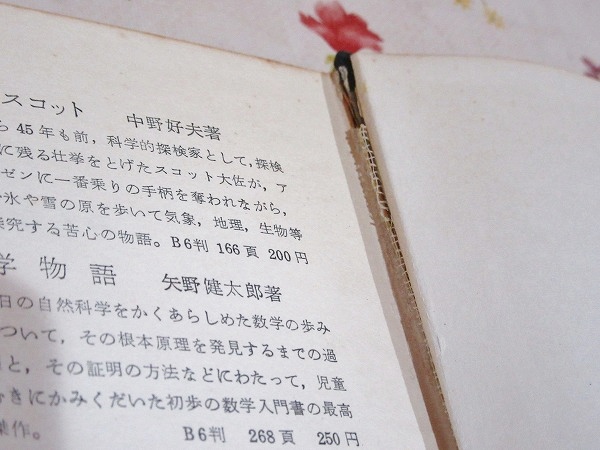 スコット 中野好夫著
ら45年も前，科学的探検家として，探検
に残る壮挙をとげたスコット大佐が，ア
ゼンに一番乗りの手柄を奪われながら，
氷や雪の原を歩いて気象，地理，生物等
究する苦心の物語。B6判 166頁 200円
学物語 矢野健太郎著
日の自然科学をかくあらしめた数学の歩み
ついて，その根本原理を発見するまでの過
と，その証明の方法などにわたって，児童
きにかみくだいた初歩の数学入門書の最高
作。 B6判 268頁 250円